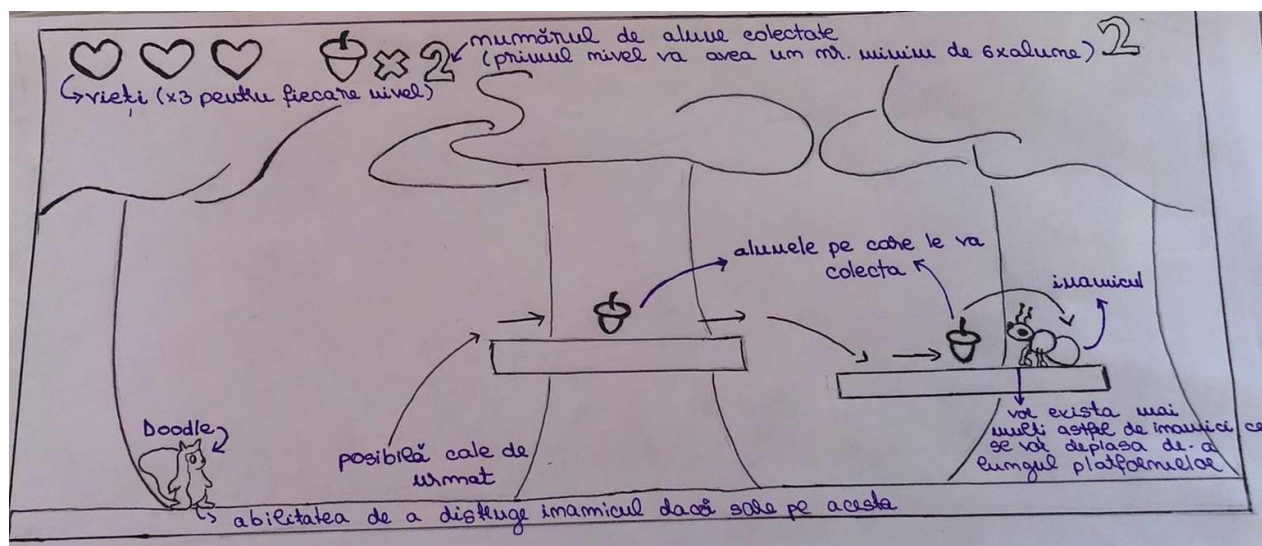 numărul de alune colectate
x 2
(primul nivel va avea um nr. minim de 6xalune)
2
vieți (x3 pentru fiecare nivel)
alunele pe care le va
colecta
inamicul
Doodle
posibilă cale de
urmat
vor exista mai
mulți astfel de inamici ce
se vor deplasa de-a
lungul platformelor
abilitatea de a distruge inamicul dacă sare pe acesta